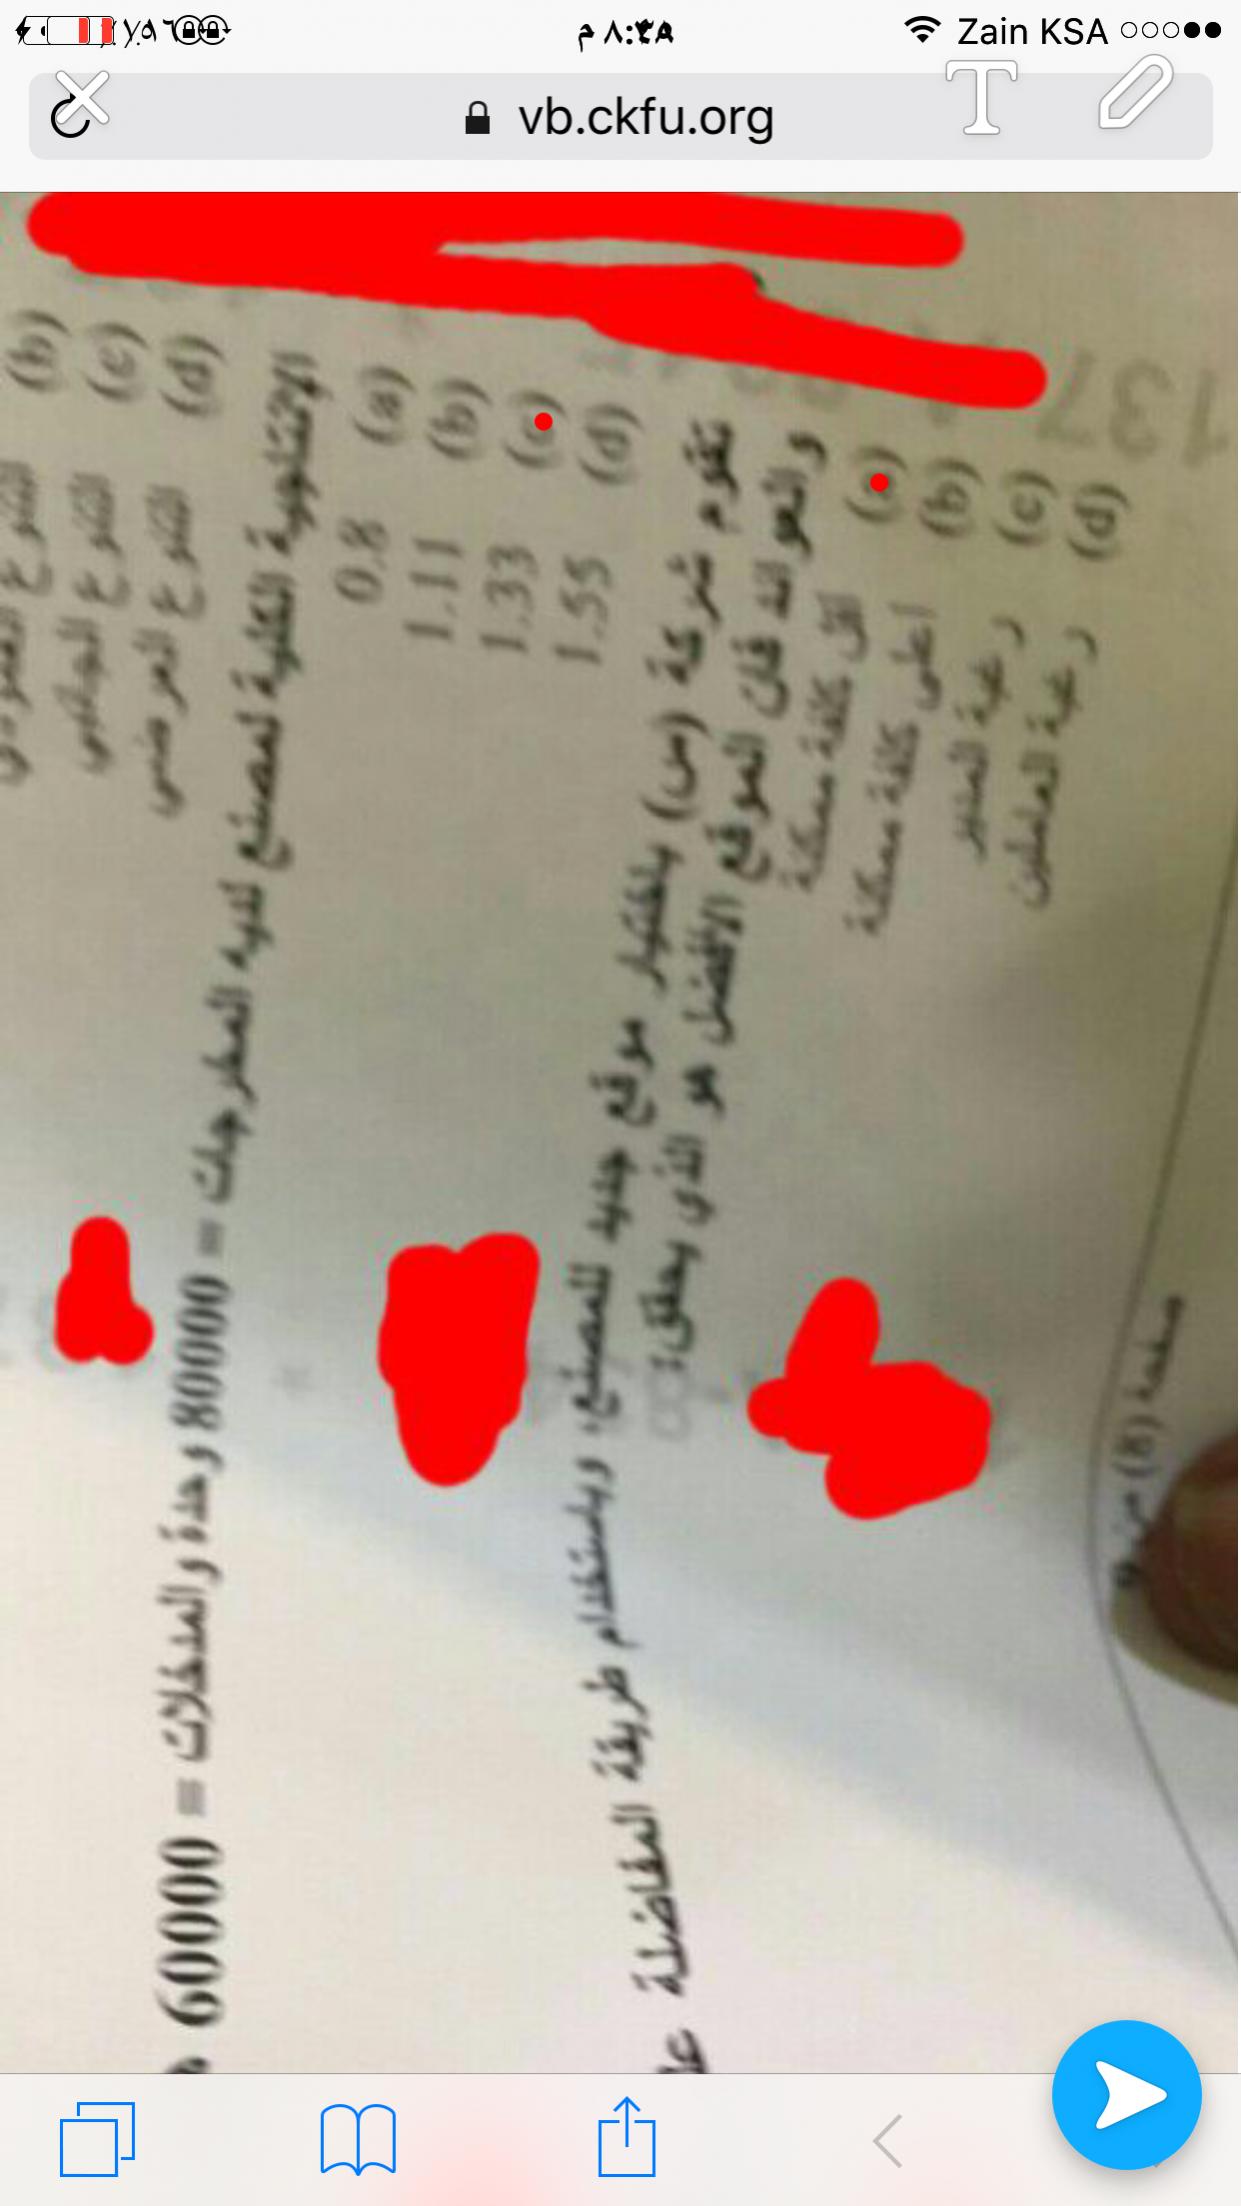 ٨:٣٥ م
Zain KSA
vb.ckfu.org
T
137
(b) التنوع
(c) التنوع
(d) التنوع العرضي
الإنتاجية الكلية لمصنع لديه المخرجات = 80000 وحدة والمدخلات = 60000
(a) 0.8
(b) 1.11
(c) 1.33
(d) 1.55
تقوم شركة (س) باختيار موقع جديد للمصنع، وباستخدام طريقة المفاضلة
والعوائد فإن الموقع الأفضل هو الذي يحقق:
(a) أقل كلفة ممكنة
(b) أعلى كلفة ممكنة
(c) رغبة المدير
(d) رغبة العاملين
صفحة (8) من